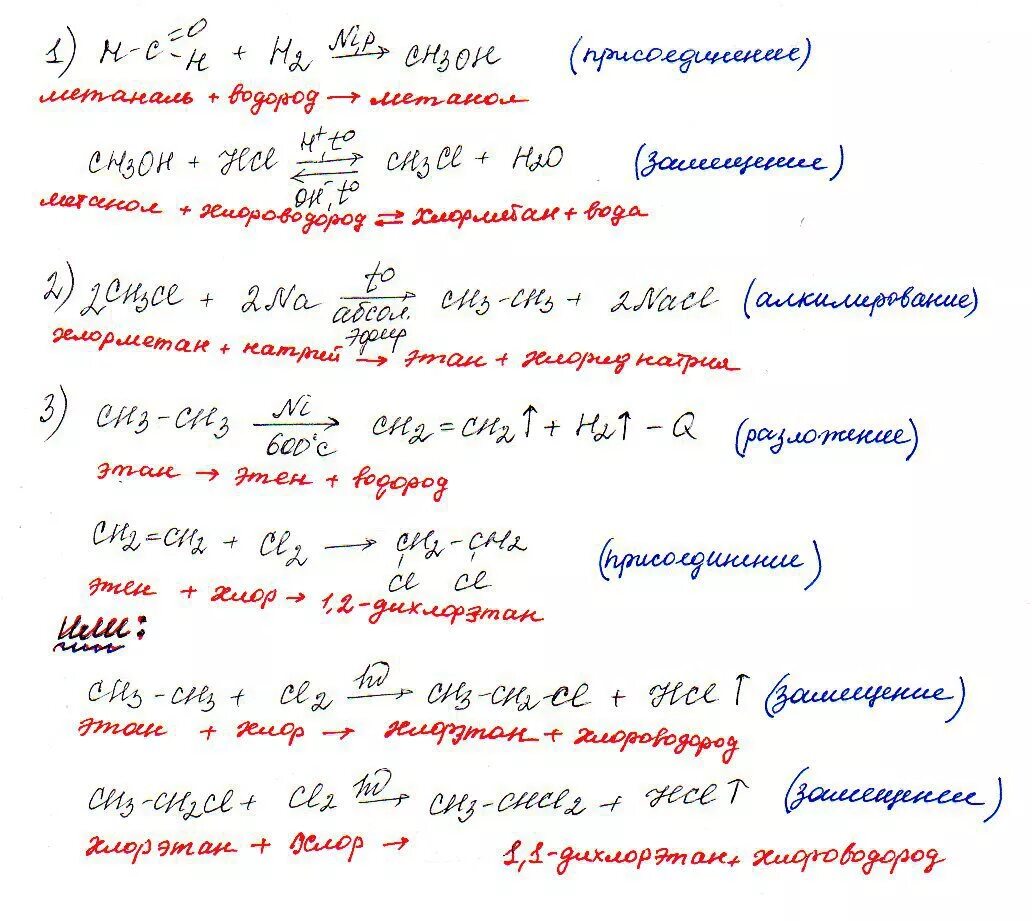 1) H-C=O-H + H2 Ni,p→ CH3OH (присоединение)
метаналь + водород → метанол
CH3OH + HCl H+,t0⇄OH-,t0 CH3Cl + H2O (замещение)
метанол + хлороводород ⇄ хлорметан + вода
2) 2CH3Cl + 2Na t0→абсол. эфир CH3-CH3 + 2NaCl (алкилирование)
хлорметан + натрий → этан + хлорид натрия
3) CH3-CH3 Ni→600°C CH2=CH2↑ + H2↑ - Q (разложение)
этан → этен + водород
CH2=CH2 + Cl2 → CH2-CH2 (присоединение)
Cl Cl
этен + хлор → 1,2-дихлорэтан
Или:
CH3-CH3 + Cl2 hν→ CH3-CH2-Cl + HCl↑ (замещение)
этан + хлор → хлорэтан + хлороводород
CH3-CH2Cl + Cl2 hν→ CH3-CHCl2 + HCl↑ (замещение)
хлорэтан + хлор → 1,1-дихлорэтан + хлороводород